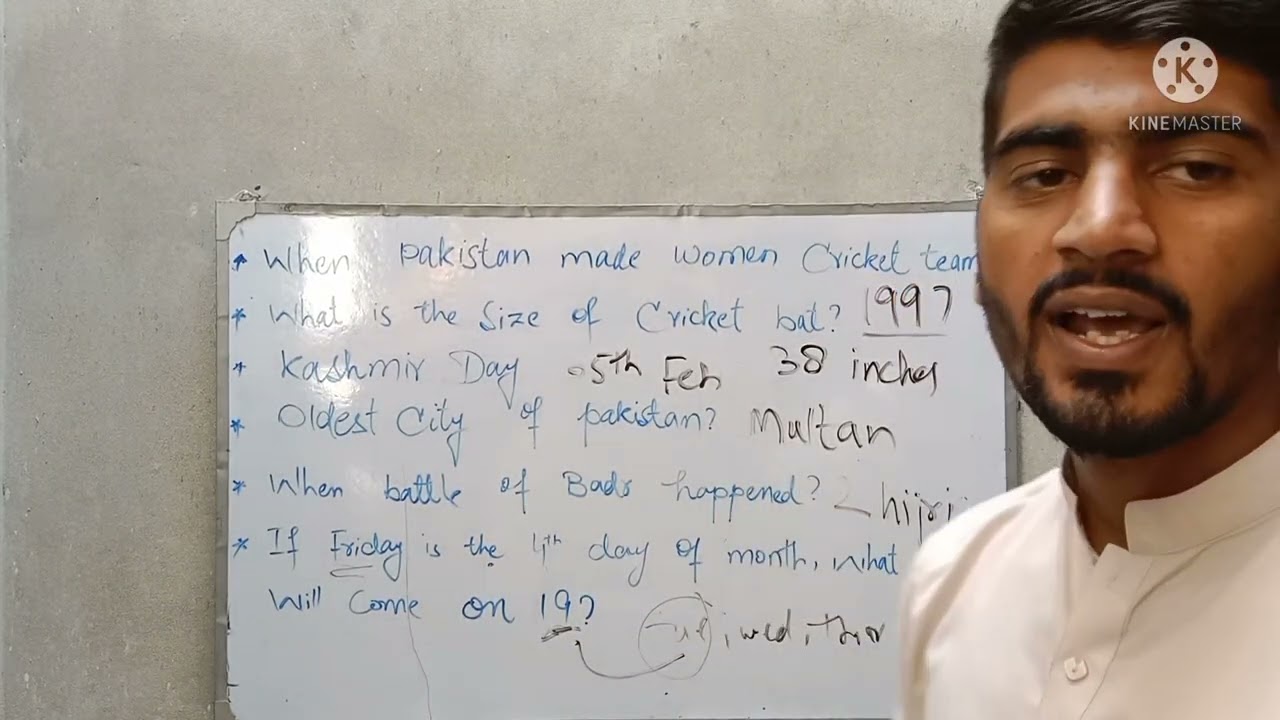 KINEMASTER
* When Pakistan made women Cricket team
* What is the Size of Cricket bat? 1997
* Kashmir Day 05th Feb 38 inches
* Oldest City of pakistan? Multan
* When battle of Badr happened? 2 hijri
* If Friday is the 4th day of month, what
Will Come on 19? , wed, thur